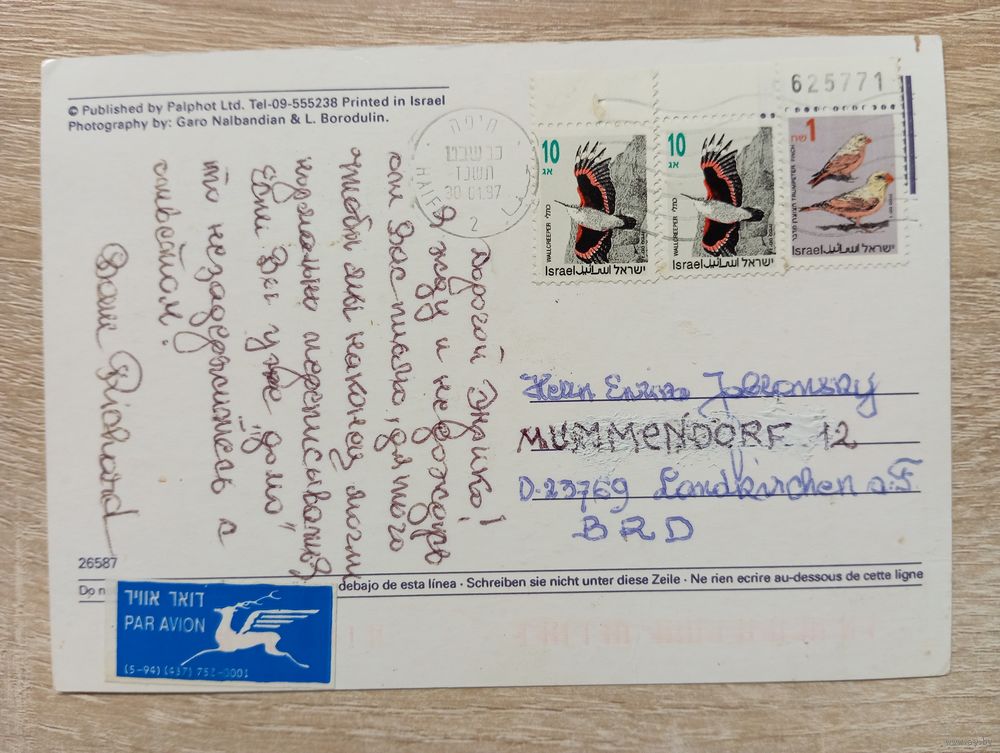 © Published by Palphot Ltd. Tel-09-555238 Printed in Israel
Photography by: Garo Nalbandian & L. Borodulin.
Дорогой Энрико!
Я жду и не дождусь
от Вас письма, для того
чтобы мы наконец могли
нормально переписываться
Если Вы уже „дома"
то не задержитесь с
ответом!
Ваш Richard
חיפה
כב שבט
תשנז
30.01.97
HAIFA
2
625771
10
אג
WALLCREEPER
Israel اسرائيل ישראל
10
אג
WALLCREEPER
Israel اسرائيل ישראל
1
שח
TRUMPETER FINCH
Israel اسرائيل ישראל
Herrn Enrico Jablonsky
MUMMENDORF 12
D-23769 Landkirchen a.F.
BRD
26587
Do n
debajo de esta línea · Schreiben sie nicht unter diese Zeile · Ne rien ecrire au-dessous de cette ligne
דואר אוויר
PAR AVION
(5-94) (437) 752-0001
www.ay.by